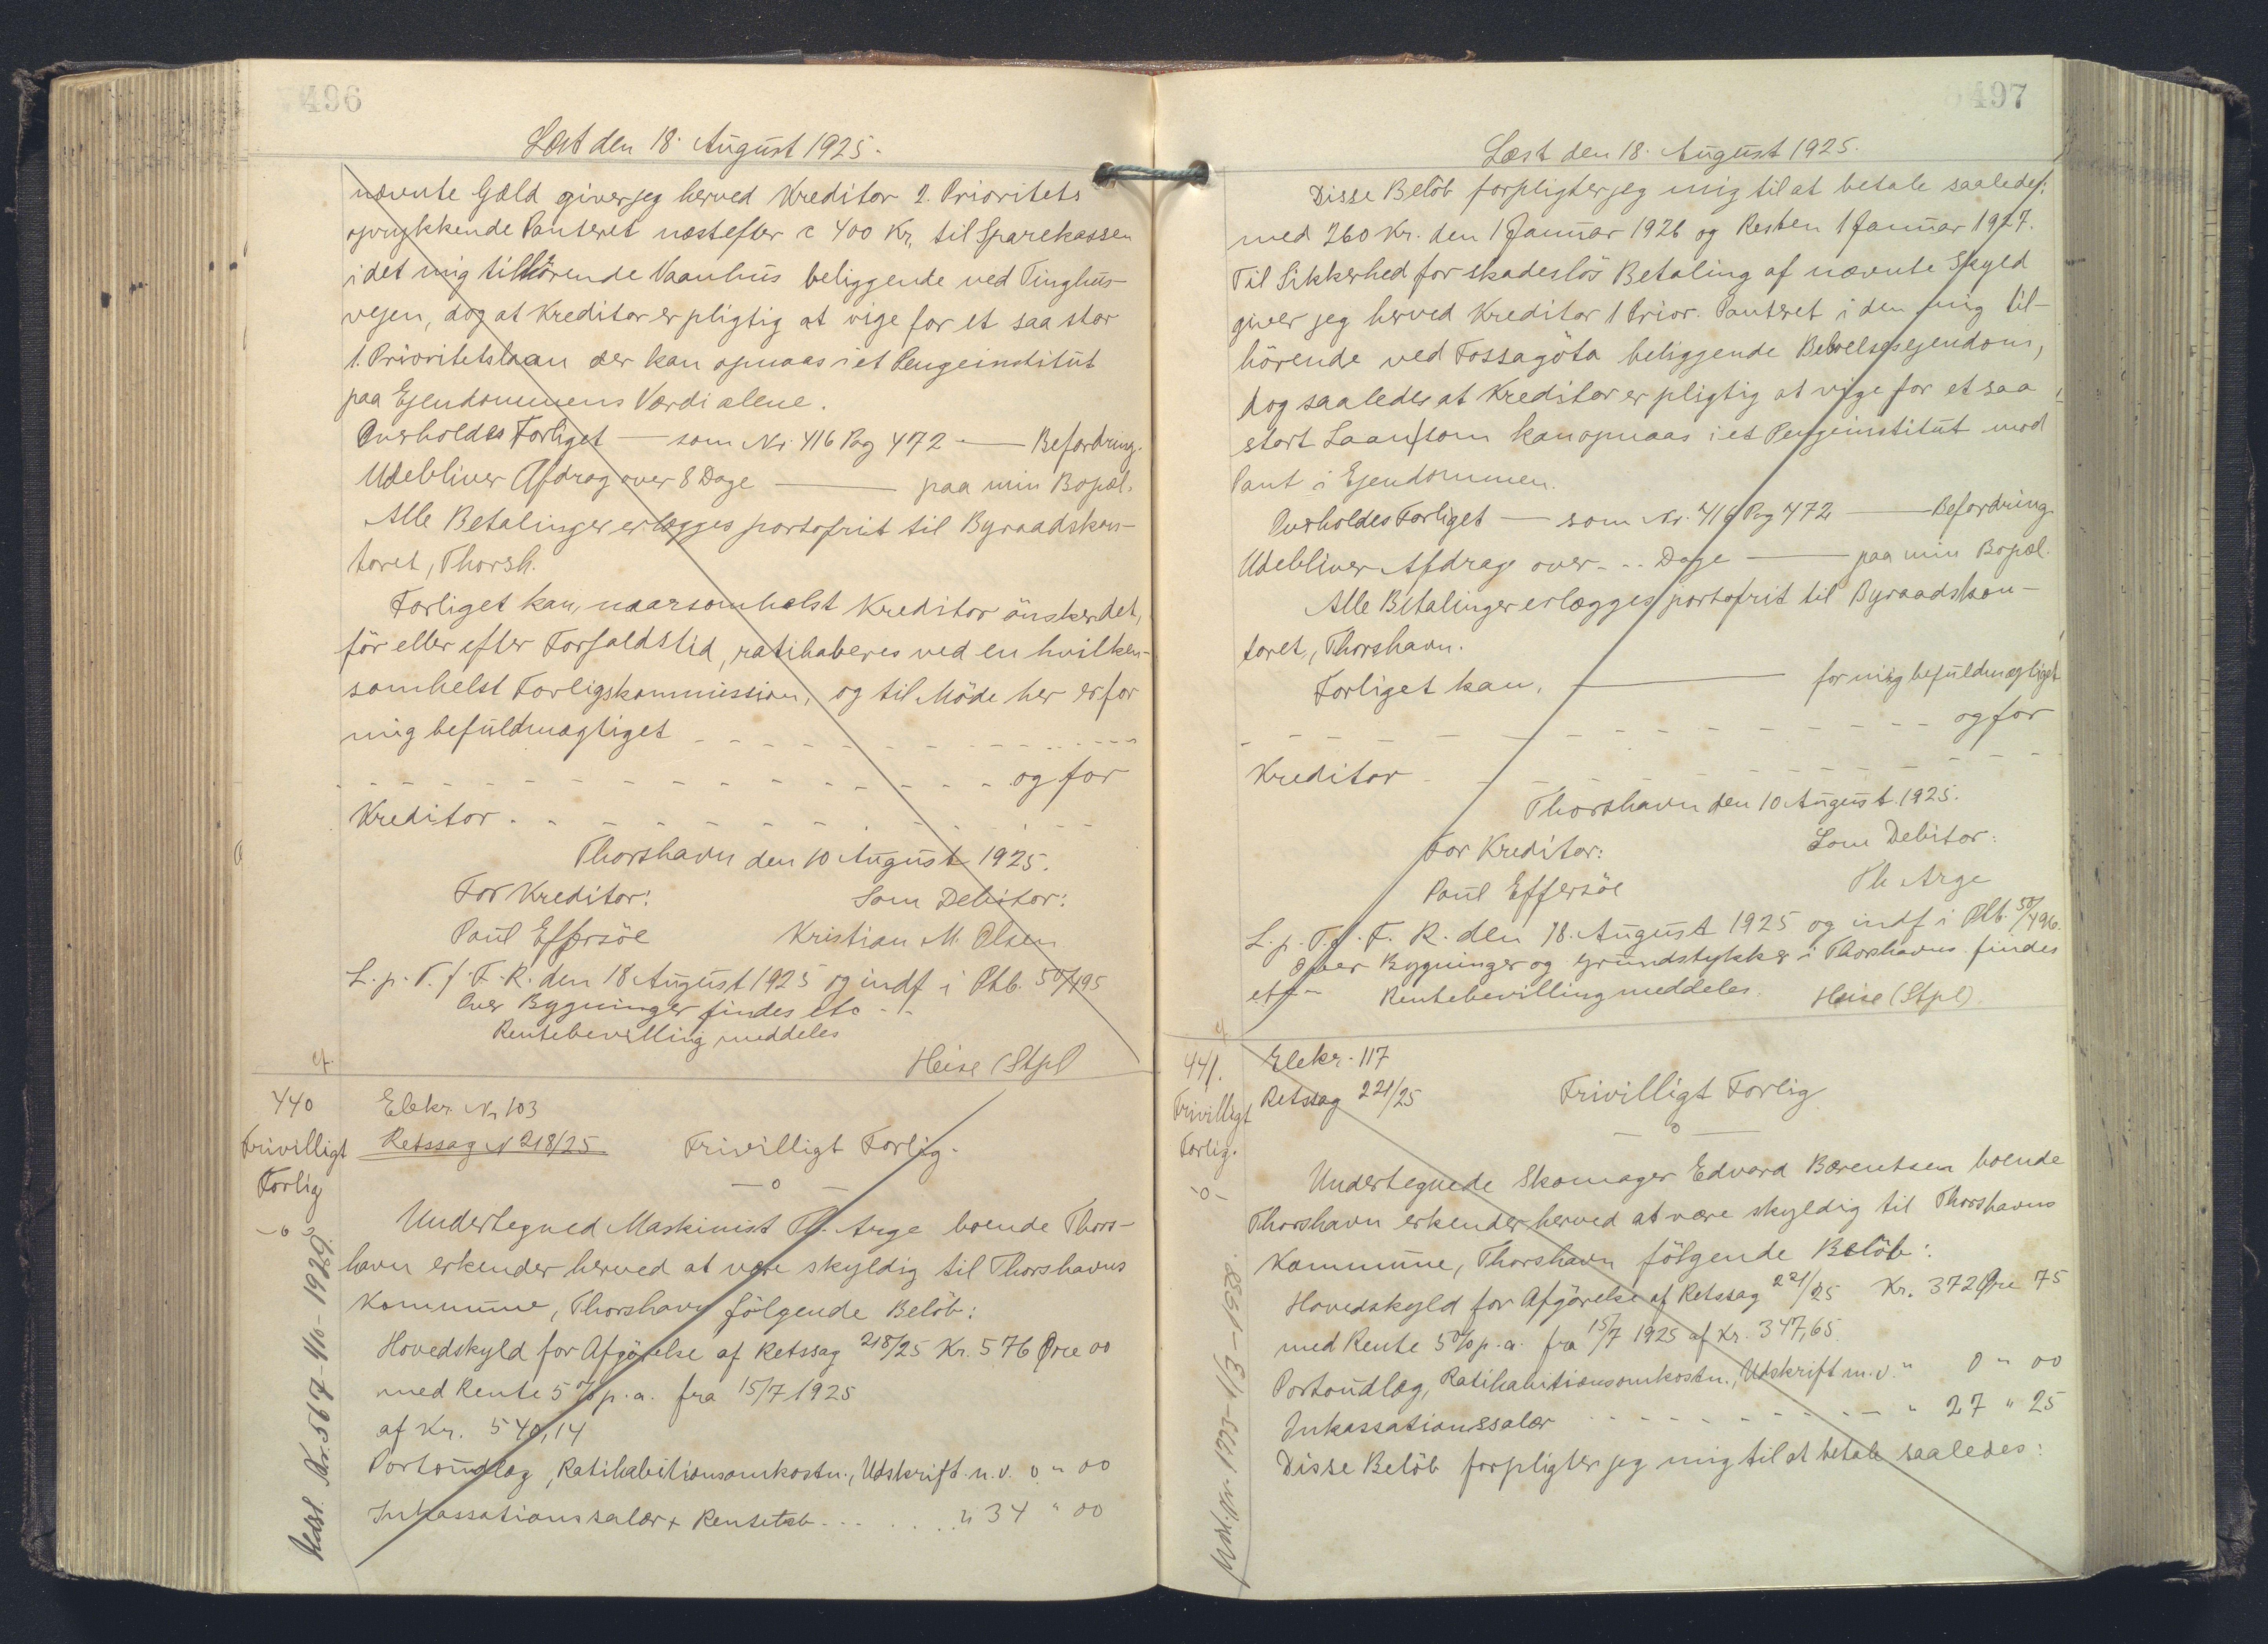 496
Læst den 18. August 1925.
nævnte Gæld giver jeg herved Kreditor 2. Prioritets
oprykkende Panteret næstefter c 400 Kr. til Sparekassen
i det mig tilhörende Vaanhus beliggende ved Tinghus-
vejen, dog at Kreditor er pligtig at vige for et saa stor
1. Prioritetslaan der kan opnaas i et Pengeinstitut
paa Ejendommens Værdi alene.
Overholdes Forliget — som Nr. 416 Pag 472 — Befordring.
Udebliver Afdrag over 8 Dage — paa min Bopæl.
Alle Betalinger erlægges portofrit til Byraadskon-
toret, Thorsh.
Forliget kan, naarsomhelst Kreditor önsker det,
för eller efter Forfaldstid, ratihaberes ved en hvilken-
somhelst Forligskommission, og til Möde her er for
mig befuldmægtiget - - - - - - - - - - - -
- - - - - - - - - - - - - - - og for
Kreditor. - - - - - - - - - - - -
Thorshavn den 10 August 1925.
For Kreditor: Som Debitor:
Paul Effersöe Kristian M. Olsen
L. p. T. f. F. R. den 18 August 1925 og indf i Ptb. 50/495
Over Bygninger findes etc - -
Rentebevilling meddeles
Heise (Stpl)
cf.
440 Elekr. Nr 103
Frivilligt Retssag N 218/25 Frivilligt Forlig.
Forlig —o—
-o-
Undertegned Maskinist Th. Arge boende Thors-
havn erkender herved at være skyldig til Thorshavns
Kommune, Thorshavn følgende Belöb:
Hovedskyld for Afgörelse af Retssag 218/25 Kr. 576 Øre 00
med Rente 5 % p. a. fra 15/7 1925
af Kr. 540,14
Portoudlæg, Ratihabitionsomkostn., Udskrift m. v. 0 " 00
Inkassationssalær + Rentetab - - - . . . " 34 " 00
Udsl. Nr. 567 - 1/10 - 1929.
497
Læst den 18. August 1925.
Disse Belöb forpligter jeg mig til at betale saaledes:
med 260 Kr. den 1 Januar 1926 og Resten 1 Januar 1927.
Til Sikkerhed for skadeslös Betaling af nævnte Skyld
giver jeg herved Kreditor 1 Prior. Panteret i den mig til-
hörende ved Fossagöta beliggende Beboelsesejendom,
dog saaledes at Kreditor er pligtig at vige for et saa
stort Laan som kan opnaas i et Pengeinstitut mod
Pant i Ejendommen.
Overholdes Forliget — som Nr. 416 Pag 472 — Befordring.
Udebliver Afdrag over - - - Dage — paa min Bopæl.
Alle Betalinger erlægges portofrit til Byraadskon-
toret, Thorshavn.
Forliget kan, — for mig befuldmægtiget
- - - - - - - - - - - - - - og for
Kreditor - - - - - - - - - - - -
Thorshavn den 10 August 1925.
For Kreditor: Som Debitor:
Paul Effersöe Th Arge
L. p. T. f. F. R. den 18. August 1925 og indf i Ptb. 50/496.
Over Bygninger og Grundstykker i Thorshavns findes
etc - Rentebevilling meddeles. Heise (Stpl).
cf
441. Elekr. 117
Frivilligt Retssag 221/25 Frivilligt Forlig
Forlig. —o—
-o-
Undertegnede Skomager Edvard Bærentsen boende
Thorshavn erkender herved at være skyldig til Thorshavns
Kommune, Thorshavn fölgende Belöb:
Hovedskyld for Afgörelse af Retssag 221/25 Kr. 372 Øre 75
med Rente 5 % p. a. fra 15/7 1925 af Kr. 347,65.
Portoudlæg, Ratihabitionsomkostn., Udskrift m. v. " 0 " 00
Inkassationssalær - - - - - - - - - " 27 " 25
Disse Belöb forpligter jeg mig til at betale saaledes: